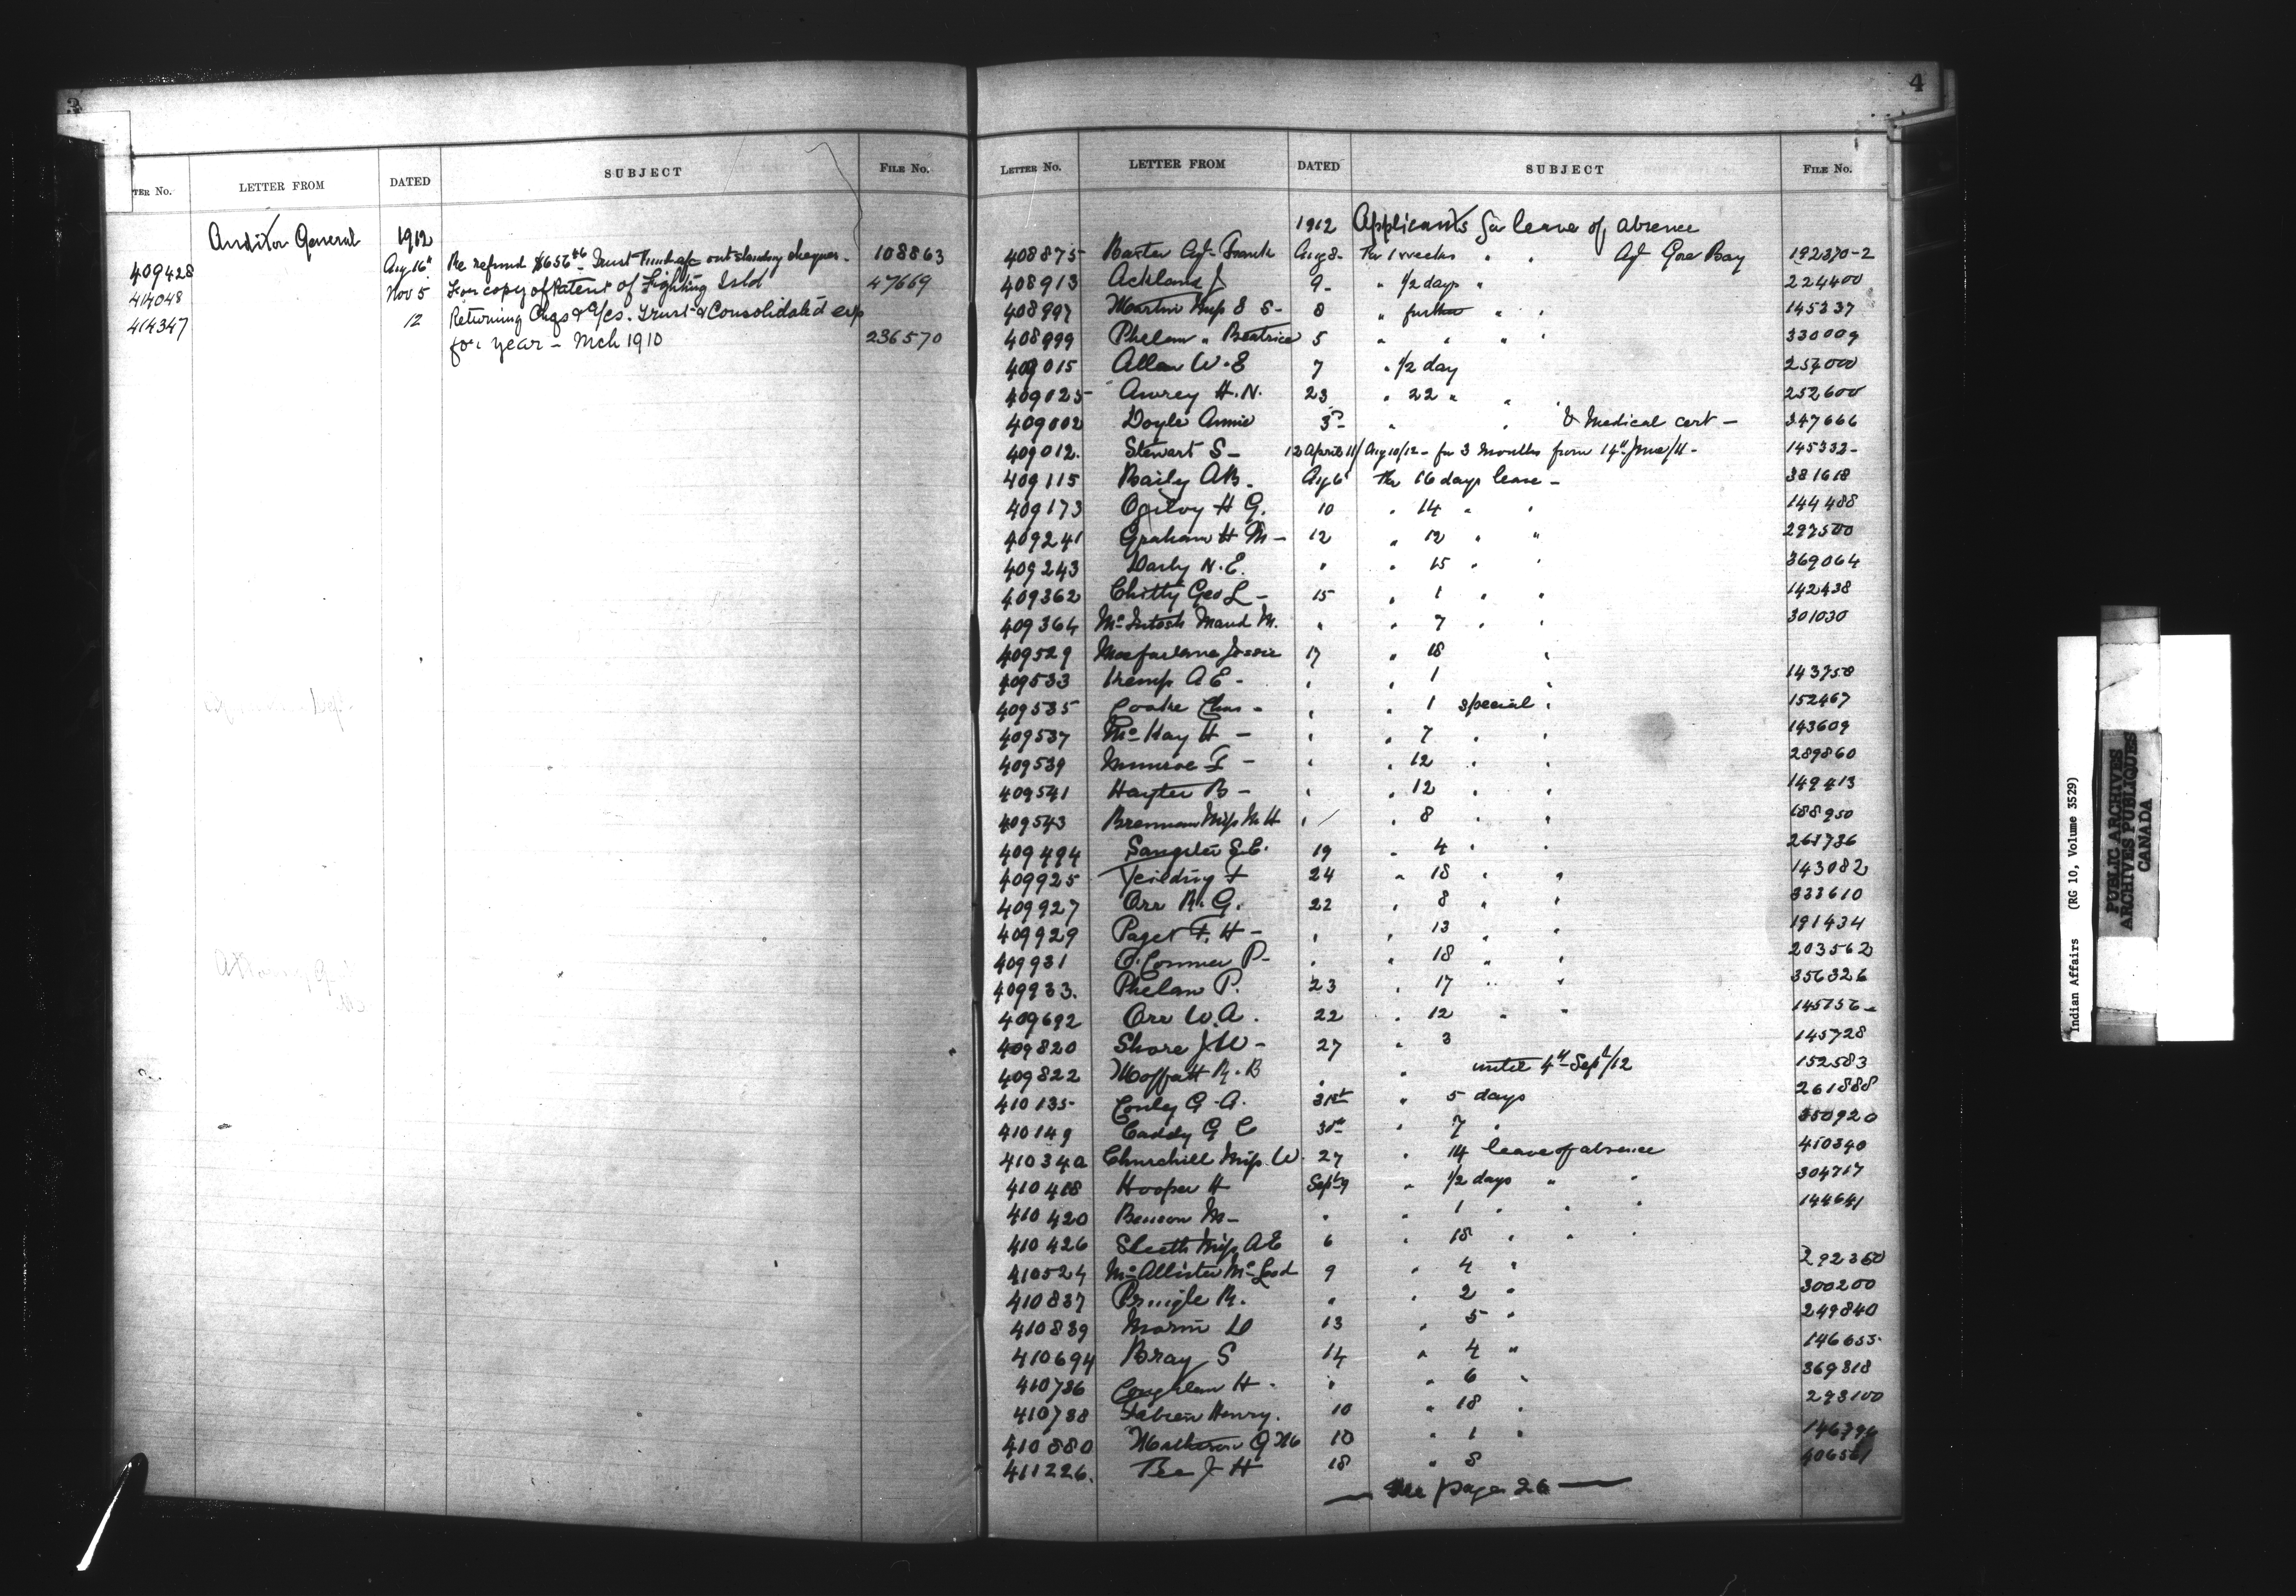 3
TER NO. LETTER FROM DATED SUBJECT FILE No.
Auditor General 1912
409428 Aug 16" Re refund $656 46 Trust Funds a/c outstanding cheques - 108863
414048 Nov 5 For copy of Patent of Fighting Isld 47669
414347 12 Returning Chqs & a/cs. Trust & Consolidated exp
for year - Mch 1910 236570
4
LETTER No. LETTER FROM DATED SUBJECT FILE No.
1912 Applicants for leave of absence
408875 Baxter Agt Frank Aug 8 - For 1 weeks " " Agt Gore Bay 192370-2
408913 Ackland J 9 - " 1/2 days " 224400
408997 Martin Miss S S - 8 " further " " 145337
408999 Phelan " Beatrice 5 " " " " 330009
409015 Allan W. E 7 " 1/2 day 254000
409025 Awrey H. N. 23 " 22 " " 252600
409002 Doyle Annie 3 " " & Medical cert - 347666
409012. Stewart S - 12 April 11/ Aug 10/12 - for 3 months from 14th June/11 - 145332 -
409115 Baily AB. Aug 6 For 16 days leave - 381618
409173 Ogilvy H G. 10 " 14 " " 144488
409241 Graham H M - 12 " 12 " " 297500
409243 Darby N. E. " " 15 " " 369064
409362 Chitty Geo L - 15 " 1 " " 142438
409364 McIntosh Maud M. " " 7 " " 301030
409529 Macfarlane Jessie 17 " 18 "
409533 Kemp A E - " " 1 " 143758
409535 Cooke Chas - " " 1 special " 152467
409537 McKay H - " " 7 " " 143609
409539 Munroe F - " " 12 " " 289860
409541 Hayter B - " " 12 " " 149413
409543 Brennan Miss M H " " 8 " " 188950
409494 Sangster E. E. 19 " 4 " " 261736
409925 Yeilding F 24 " 18 " " 143082
409927 Orr R. G. 22 " 8 " " 333610
409929 Paget F. H - " " 13 " " 191434
409931 O'Connor P - " " 18 " " 203562
409933. Phelan P. 23 " 17 " " 356326
409692 Orr W. A. 22 " 12 " " 145756 -
409820 Shore J W - 27 " 3 145728
409822 Moffatt R. B " " until 4th Sept/12 152583
410135 - Conley G. A. 31st " 5 days 261888
410149 Caddy G C 30th " 7 " 350920
410340 Churchill Miss. W. 27 " 14 leave of absence 410340
410418 Hooper H Sept 9 " 1/2 days " " 304717
410420 Benson M - " " 1 " " " 144641
410426 Sleeth Miss A E 6 " 18 " " "
410524 McAllister McLeod 9 " 4 " 292350
410837 Pringle R. " " 2 " 300200
410839 Morin D 13 " 5 " 249840
410694 Bray S 14 " 4 " 146655
410736 Coughlan H - " " 6 " 369318
410738 Fabien Henry. 10 " 18 " 293100
410880 Matheson G M 10 " 1 "
411226. Tee J H 18 " 8 406561
— See page 26 —
Indian Affairs (RG 10, Volume 3529)
PUBLIC ARCHIVES
ARCHIVES PUBLIQUES
CANADA